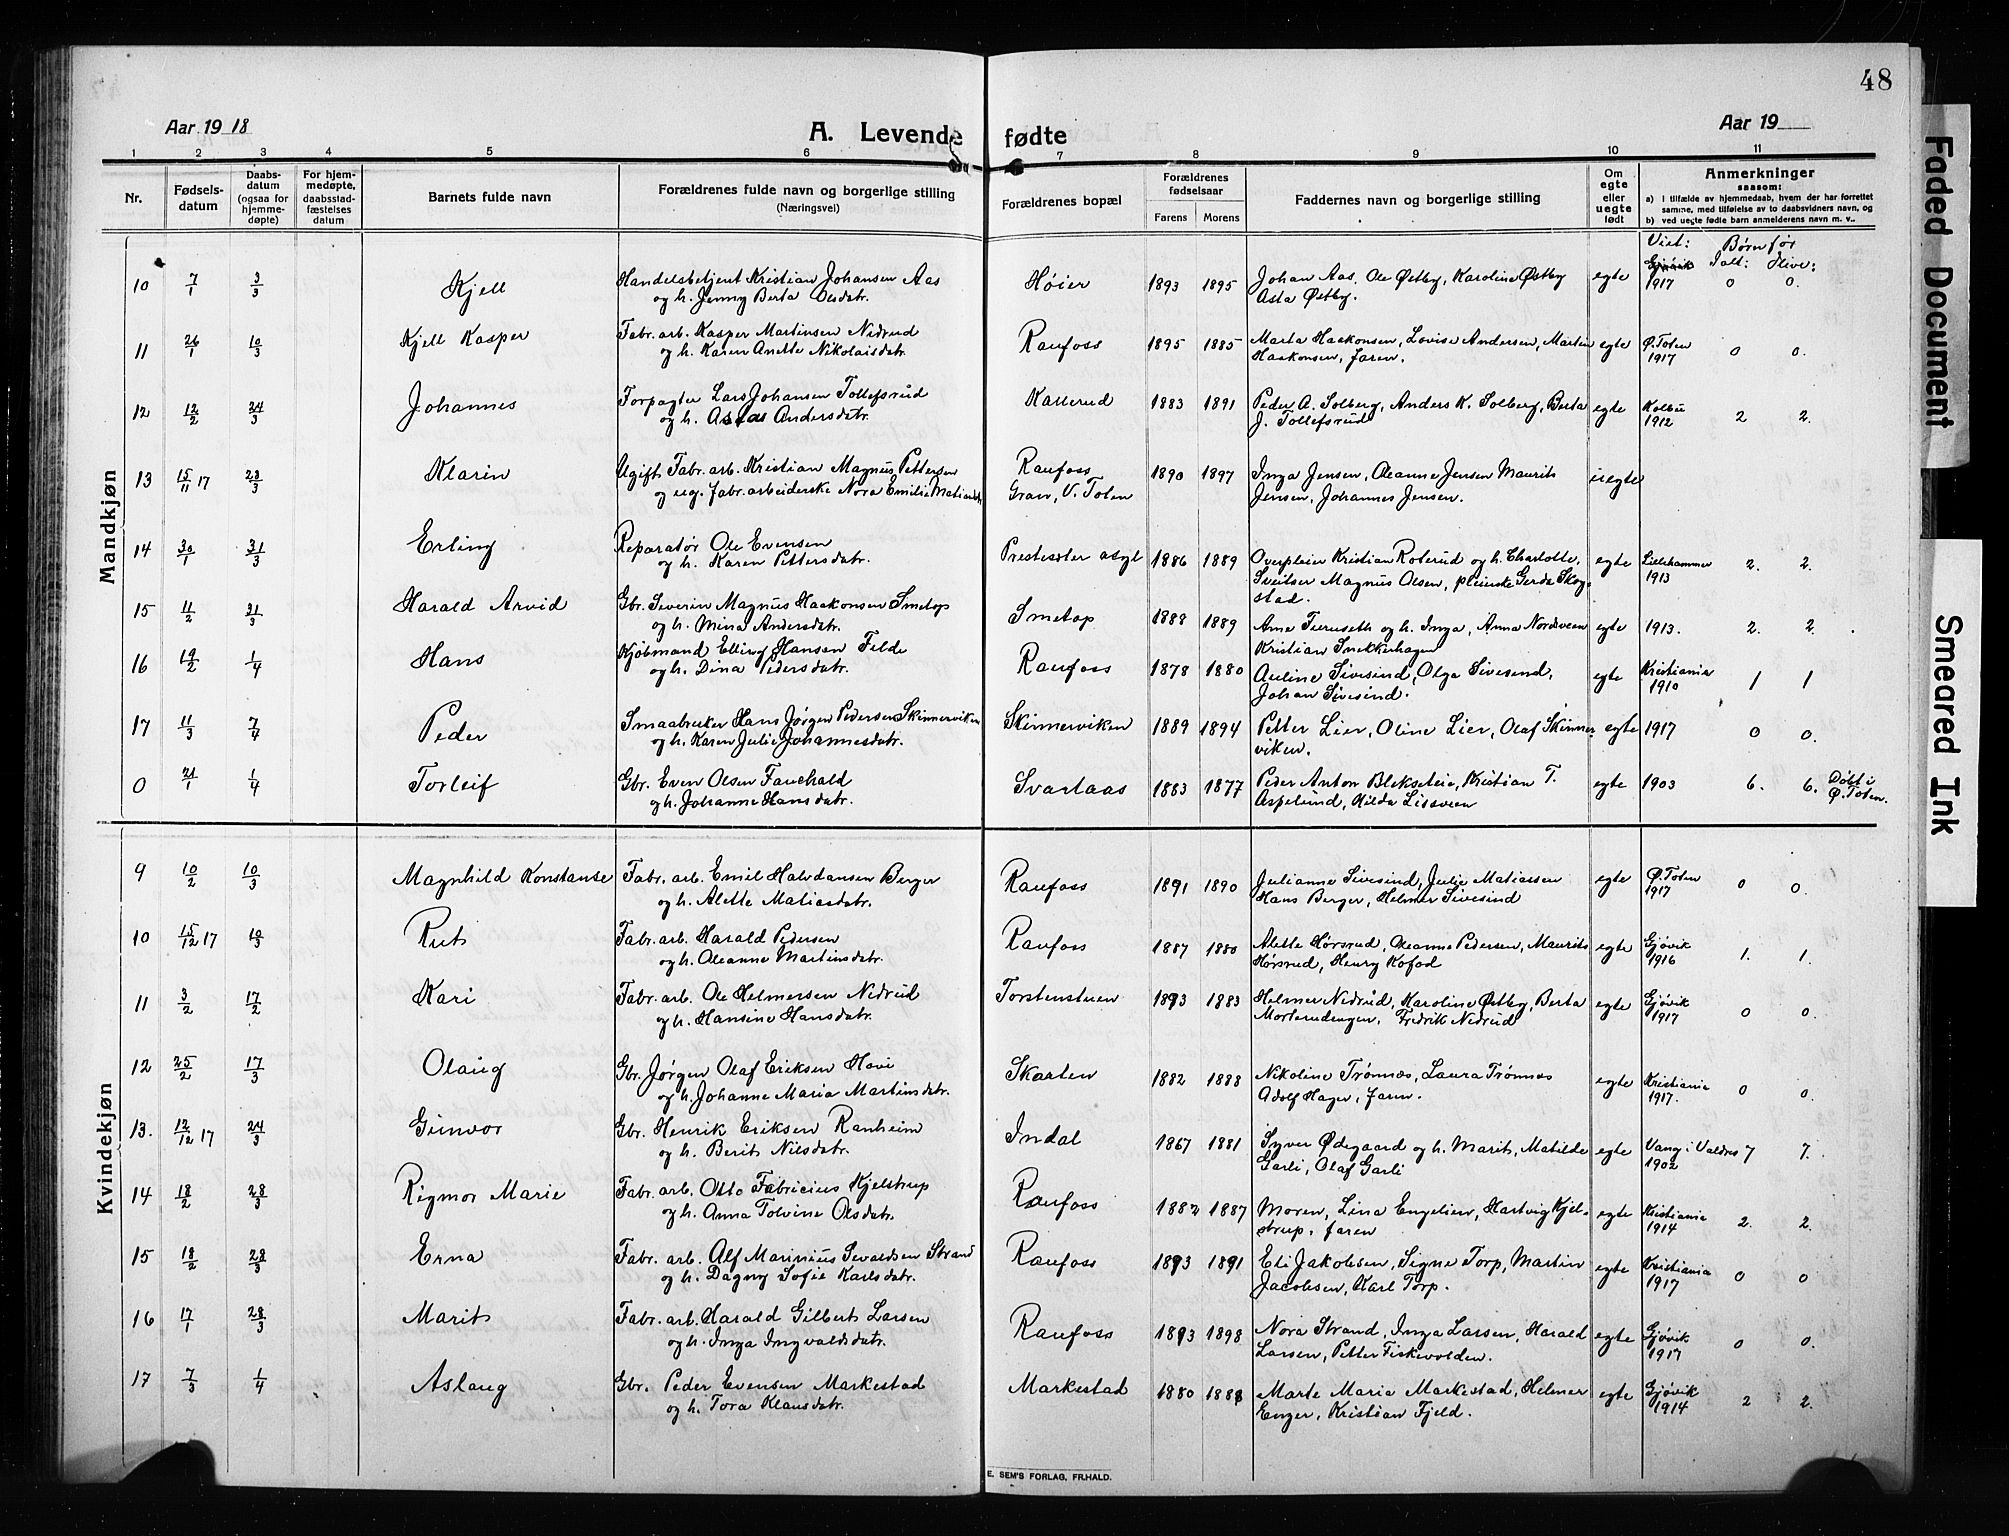 48
Aar 1918 A. Levende fødte Aar 19
1 2 3 4 5 6 7 8 9 10 11
Nr. Fødsels-datum Daabs-datum (ogsaa for hjemme-døpte) For hjem-medøpte, daabsstad-fæstelses datum Barnets fulde navn Forældrenes fulde navn og borgerlige stilling (Næringsvei) Forældrenes bopæl Forældrenes fødselsaar Farens Morens Faddernes navn og borgerlige stilling Om egte eller uegte født Anmerkninger saasom:
a) i tilfælde av hjemmedaab, hvem der har forrettet samme, med tilføielse av to daabsvidners navn, og
b) ved uegte fødte barn anmelderens navn m. v..
Viet: Børn før
Ialt: Ilive:
Mandkjøn
10 7/1 3/3 Kjell Handelsbetjent Kristian Johansen Aas Høier 1893 1895 Johan Aas, Ole Østby, Karoline Østby egte 1917 0 0.
og h. Jenny Berta Olsdatr. Asta Østby.
11 26/1 10/3 Kjell Kasper Fabr. arb. Kasper Martinsen Nedrud Raufoss 1895 1885 Marta Haakonsen, Lovise Andersen, Marten egte Ø. Toten 0 0.
og h. Karen Anette Nikolaisdatr. Haakonsen, faren. 1917
12 12/2 24/3 Johannes Forpagter Lars Johansen Tollefsrud Kallerud 1883 1891 Peder A. Solberg, Anders K. Solberg, Berta egte Kolbu 2 2.
og h. Andersdatr. J. Tollefsrud 1912
13 15/11 17 28/3 Klarin Ugift Fabr. arb. Kristian Magnus Pettersen Raufoss 1890 1897 Inga Jensen, Oleanne Jensen Maurits uegte
og ug. fabr. arbeiderske Nora Emilie Gran, V. Toten Jensen, Johannes Jensen.
14 30/1 31/3 Erling Reparatør Ole Evensen Prestesæter asyl 1886 1889 Overpleier Kristian Roterud og h. Charlotte, egte Lillehammer 2. 2.
og h. Karen Pettersdatr. Sveitser Magnus Olsen, pleierske Gerda Skog- 1913
stad.
15 11/2 31/3 Harald Arvid Gbr. Severin Magnus Haakonsen Smetop Smetop 1888 1889 Arne og h. Inga, Anna Nordsveen egte 1913. 2. 2.
og h. Mina Andersdatr. Kristian Snekkerhagen
16 19/2 1/4 Hans Kjøbmand Elling Hansen Felde Raufoss 1878 1880 Auline Sivesind, Olga Sivesind, egte Kristiania 1 1
og h. Dina Pedersdatr. Johan Sivesind. 1910
17 11/3 7/4 Peder Smaabruker Hans Jørgen Pedersen Skinnerviken Skinnerviken 1889 1894 Petter Lier, Oline Lier, Olaf Skinner- egte 1917 0 0.
og h. Karen Julie Johannesdatr. viken.
0 21/1 1/4 Torleif Gbr. Even Olsen Fauchald Svartaas 1883 1877 Peder Anton Blekseteie, Kristian T. egte 1903 6. 6. Døbt i
og h. Johanne Hansdatr. Aspelund, Hilda Lisveen Ø. Toten.
Kvindekjøn
9 10/2 10/3 Magnhild Konstanse Fabr. arb. Emil Halvdansen Berger Raufoss 1891 1890 Julianne Sivesind, Julie Matiassen egte Ø. Toten 0 0.
og h. Alette Matiasdatr. Hans Berger, Helmer Sivesind 1917
10 15/12 17 10/3 Rut Fabr. arb. Harald Pedersen Raufoss 1887 1880 Alette Hørsrud, Oleanne Pedersen, Maurits egte Gjøvik 1. 1.
og h. Oleanne Martinsdatr. Hørsrud, Henry Kofod 1916
11 3/2 17/2 Kari Fabr. arb. Ole Helmersen Nedrud Torstenstuen 1893 1883 Helmer Nedrud, Karoline Østby, Berta egte Gjøvik 0 0.
og h. Hansine Hansdatr. Morterudengen, Fredrik Nedrud 1917
12 25/2 17/3 Olaug Gbr. Jørgen Olaf Eriksen Hovi Skarten 1882 1888 Nikoline Trønnæs, Laura Trønnæs egte Kristiania 0 0.
og h. Johanne Maria Martinsdatr. Adolf Hager, faren. 1917.
13. 12/12 17 24/3 Gunvor Gbr. Henrik Eriksen Ranheim Indal 1867 1881 Syver Ødegaard og h. Marit, Matilde egte Vang i Valdres 7 7.
og h. Berit Nilsdatr. Garli, Olaf Garli 1902
14 18/2 28/3 Rigmor Marie Fabr. arb. Otto Fabricius Kjelstrup Raufoss 1882 1887 Moren, Lina Engelien, Hartvig Kjel- egte Kristiania 2. 2.
og h. Anna Tolvine Olsdatr. strup, faren 1914
15 18/2 28/3 Erna Fabr. arb. Alf Marinius Sevaldsen Strand Raufoss 1893 1891 Eli Jakobsen, Signe Torp, Martin egte Kristiania 0 0
og h. Dagny Sofie Karlsdatr. Jacobsen, Karl Torp. 1917
16 17/1 28/3 Marit Fabr. arb. Harald Gilbert Larsen Raufoss 1893 1898 Nora Strand, Inga Larsen, Harald egte Gjøvik 0 0.
og h. Inga Ingvaldsdatr. Larsen, Petter Fiskevolden. 1917
17 7/3 1/4 Aslaug Gbr. Peder Evensen Markestad Markestad 1880 1888 Marte Maria Markestad, Helmer egte Gjøvik 2 2.
og h. Tora Klausdatr. Enger, Kristian Fjeld. 1914
E. SEM'S FORLAG, FR.HALD.
Faded Document
Smeared Ink